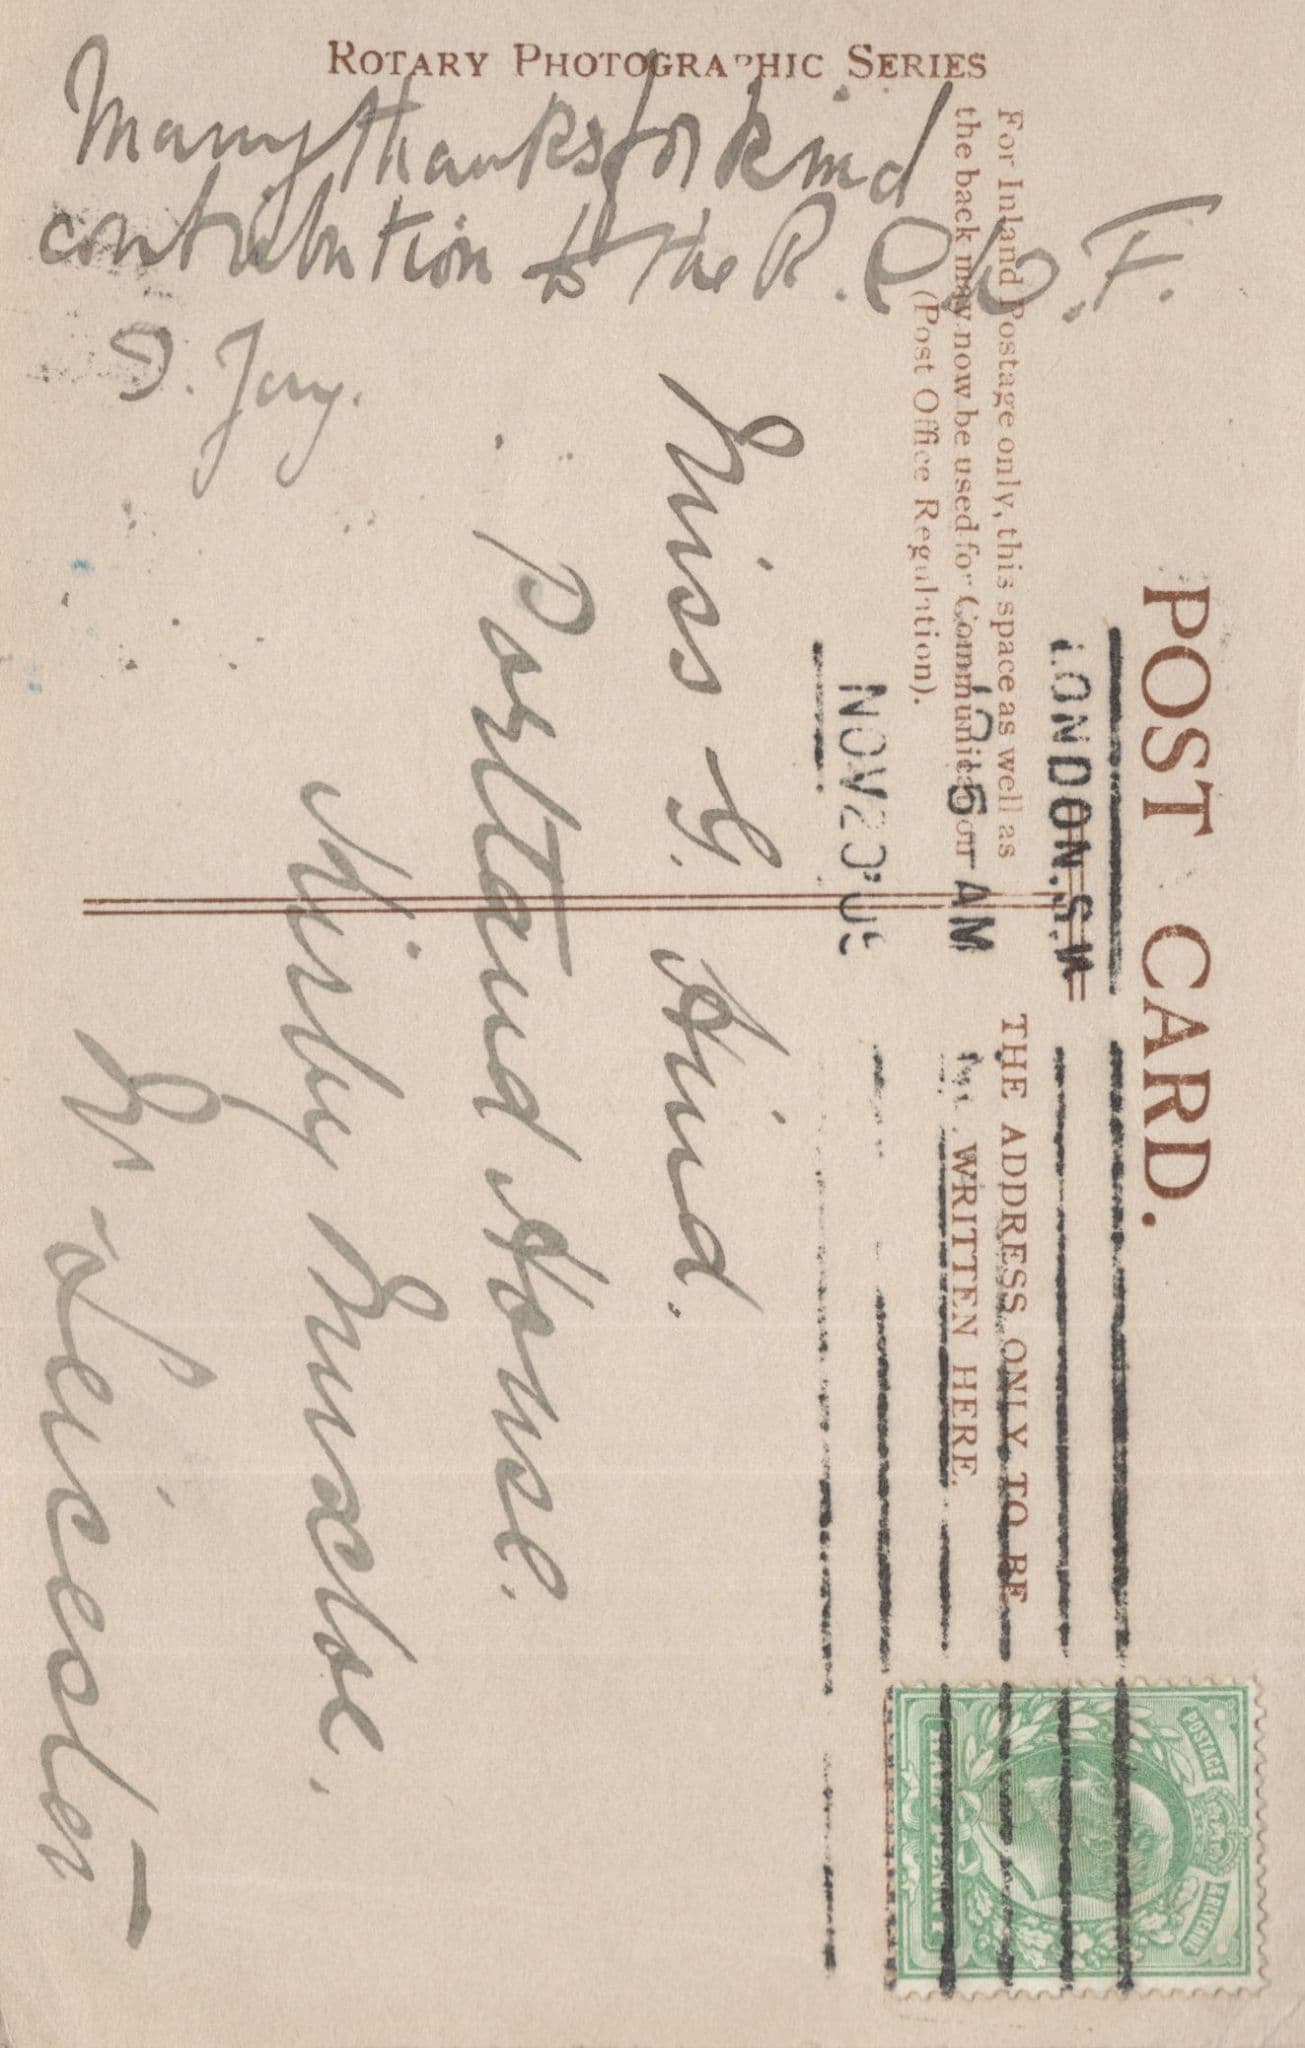 ROTARY PHOTOGRAPHIC SERIES
Many thanks for kind
contribution to the R. C. B. F.
D. Jay.
POST CARD.
For Inland Postage only, this space as well as
the back may now be used for Communication
(Post Office Regulation).
THE ADDRESS ONLY TO BE
WRITTEN HERE.
LONDON. S.W
AM
NOV 20 05
Miss G. Hind.
Portland House.
Kirby Muxloe.
Nr Leicester
POSTAGE
REVENUE
HALFPENNY